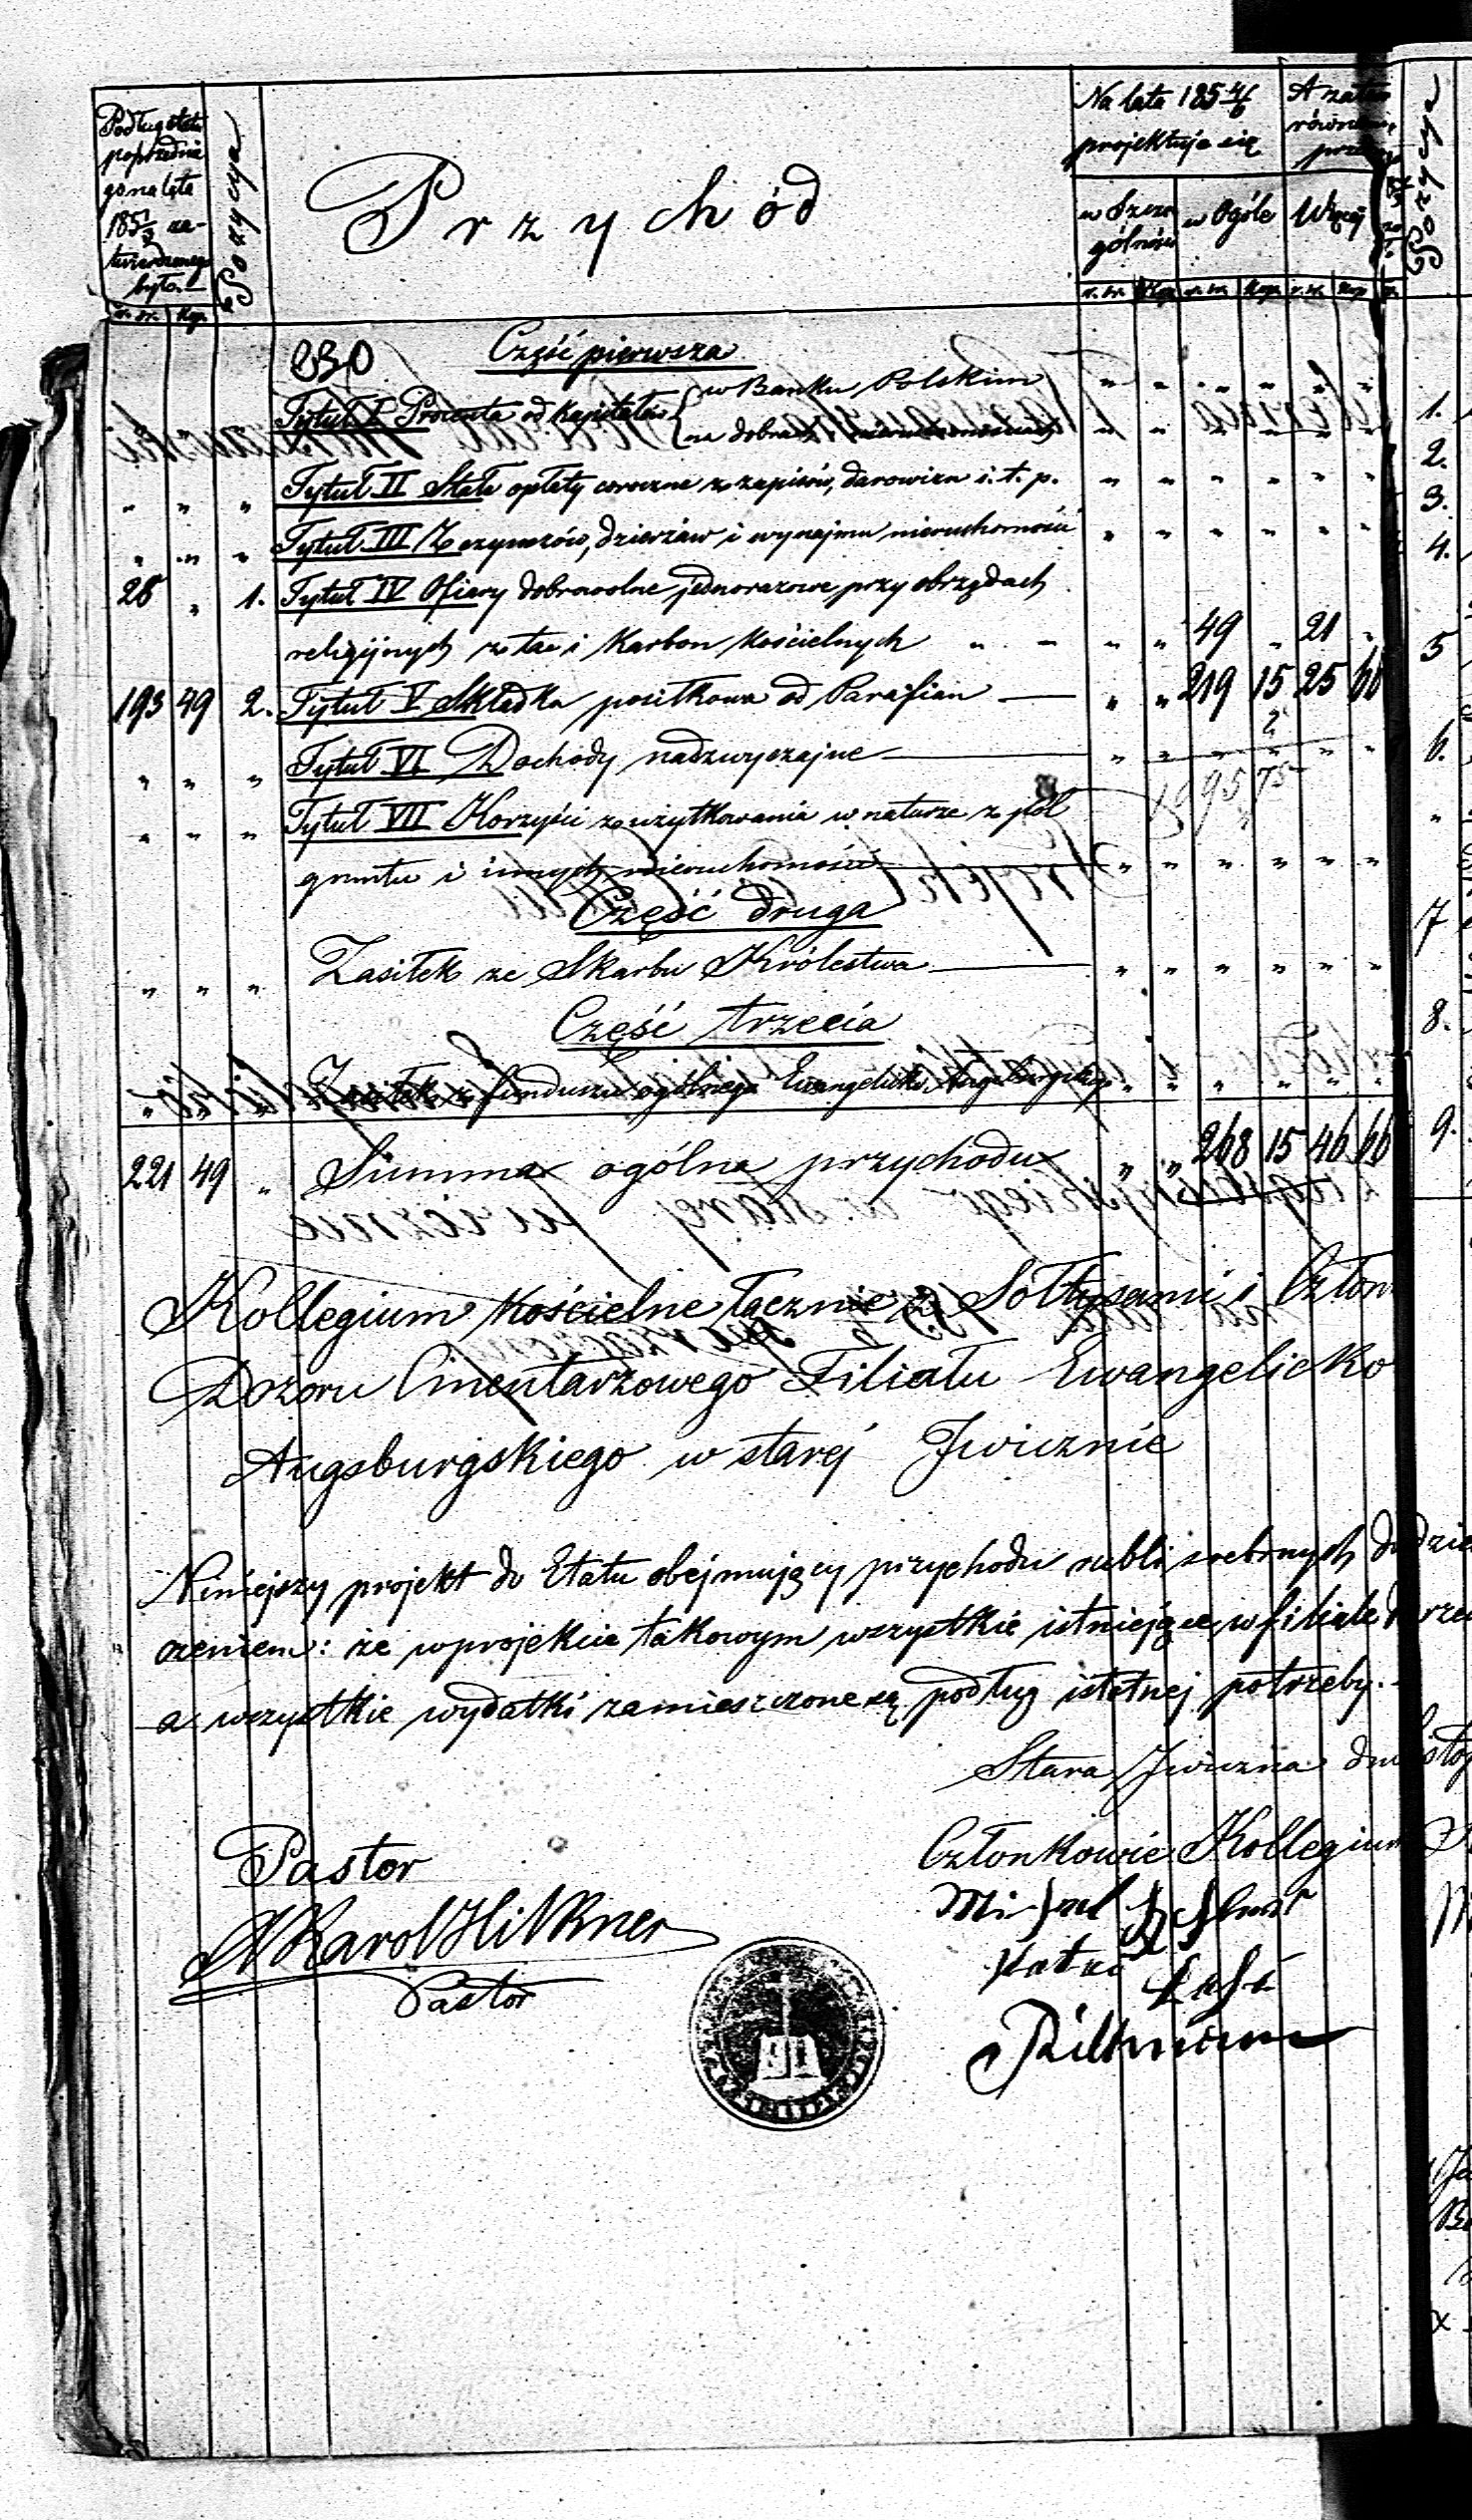 Podług etatu
poprzednie
go na lata
185 1/3 za-
twierdzonego
było.
Pozycya
Przychód
Na lata 185 4/6
projektuje się
w Szcze
gólności
w Ogóle
A zatem
Więcej
r. sr. Kop. r. sr. Kop. r. sr. Kop
r. sr. Kop.
230 Część pierwsza
Tytuł I Procenta od Kapitałów { w Banku Polskim " " " " " "
na dobrach i nieruchomościach " " " " " "
" " " Tytuł II Stałe opłaty coroczne z zapisów, darowizn i. t. p. " " " " " "
" " " Tytuł III Z czynszów, dzierżaw i wynajmu nieruchomości " " " " " "
28 " 1. Tytuł IV Ofiary dobrowolne jednorazowe, przy obrzędach
religijnych z tac i Karbon Kościelnych " " " " 49 " 21 "
193 49 2. Tytuł V Składka posiłkowa od Parafian — " " 219 15 25 66
" " " Tytuł VI Dochody nadzwyczajne — " " " " " "
" " " Tytuł VII Korzyści z użytkowania w naturze z pól
gruntu i innych nieruchomości — " " " " " "
Część druga
" " " Zasiłek ze Skarbu Królestwa — " " " " " "
Część trzecia
" " " Zasiłek z funduszu ogólnego Ewangelicko Augsburgskiego " " " " " "
221 49 " Summa ogólna przychodu " " 268 15 46 66
Kollegium Kościelne łącznie z Sołtysami i Człon
Dozoru Cmentarzowego Filiału Ewangelicko
Augsburgskiego w starej Jwicznie
Niniejszy projekt do Etatu obejmujący przychodu rubli srebrnych
czeniem: że w projekcie takowym wszystkie istniejące w filiale
a wszystkie wydatki zamieszczone są podług istotnej potrzeby. -
Stara Jwiczna dnia
Pastor
Członkowie Kollegium
Karol Hilkner
Pastor